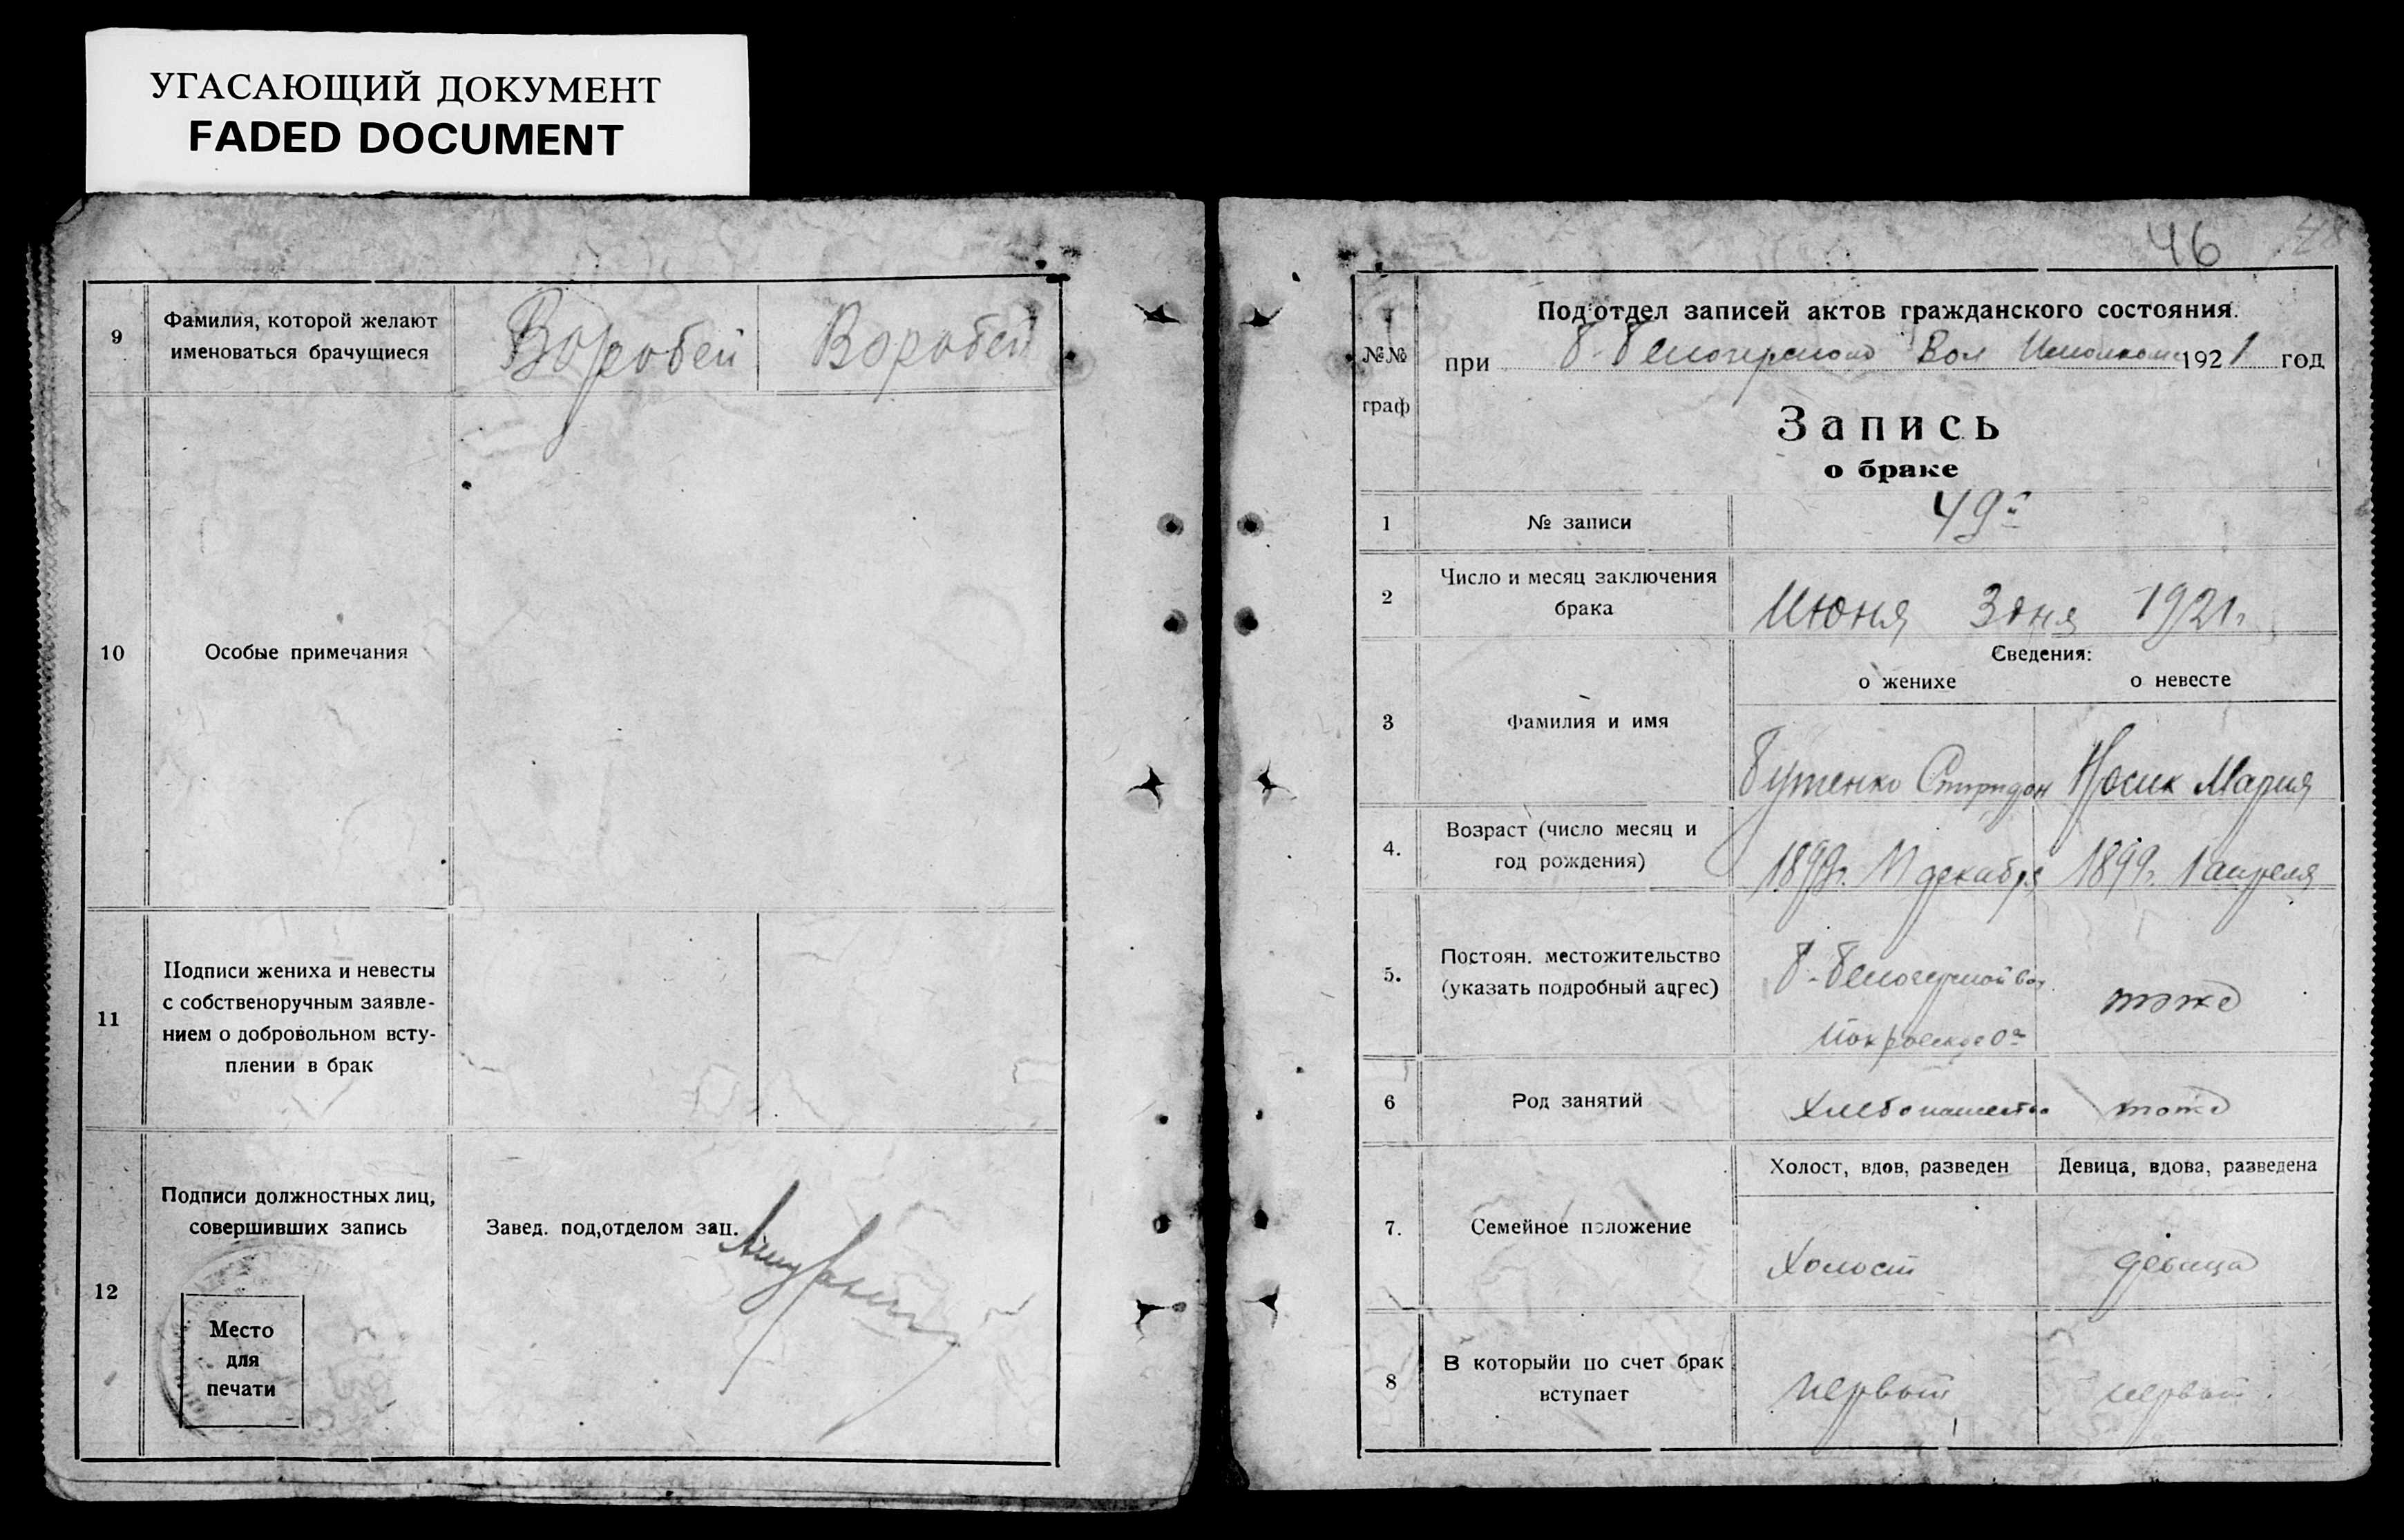 УГАСАЮЩИЙ ДОКУМЕНТ
FADED DOCUMENT
9
Фамилия, которой желают
именоваться брачущиеся
Воробей
Воробей
10
Особые примечания
11
Подписи жениха и невесты
с собственоручным заявле-
нием о добровольном всту-
плении в брак
12
Подписи должностных лиц,
совершивших запись
Завед. под,отделом зап.
Место
для
печати
46
№№
граф
Под'отдел записей актов гражданского состояния.
при Б-Белозерском Вол Исполкоме 1921 год
Запись
о браке
1
№ записи
49й
2
Число и месяц заключения
брака
Июня 3 дня 1921г.
Сведения:
о женихе
о невесте
3
Фамилия и имя
Бутенко Спиридон
Носик Мария
4.
Возраст (число месяц и
год рождения)
1899г. 11 декабря
1899г. 1 апреля
5.
Постоян. местожительство
(указать подробный адрес)
Б-Белозерской вол.
тоже
6
Род занятий
Хлебопашество
тоже
7.
Семейное положение
Холост, вдов, разведен
Девица, вдова, разведена
Холост
девица
8
В которыйи по счет брак
вступает
первый
первый.